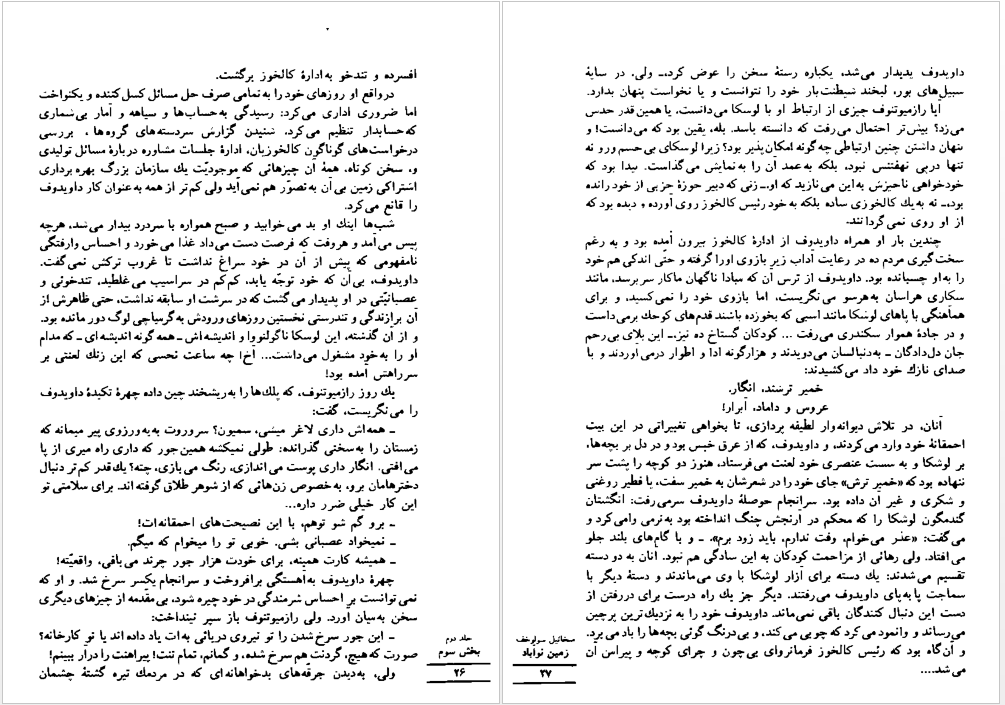 افسرده و تندخو به ادارهٔ کالخوز برگشت.
درواقع او روزهای خود را به تمامی صرف حل مسائل کسل‌کننده و یکنواخت
اما ضروری اداری می‌کرد: رسیدگی به‌حساب‌ها و سیاهه و آمار بی‌شماری
که حسابدار تنظیم می‌کرد، شنیدن گزارش سردسته‌های گروه‌ها، بررسی
درخواست‌های گوناگون کالخوزیان، ادارهٔ جلسات مشاوره دربارهٔ مسائل تولیدی
و، سخن کوتاه، همهٔ آن چیزهائی که موجودیّت یك سازمان بزرگ بهره برداری
اشتراکی زمین بی‌آن به‌تصوّر هم نمی‌آید ولی کم‌تر از همه به‌عنوان کار داویدوف
را قانع می‌کرد.
شب‌ها اینك او بد می‌خوابید و صبح همواره با سردرد بیدار می‌شد، هرچه
پیش می‌آمد و هروقت که فرصت دست می‌داد غذا می‌خورد و احساس وارفتگی
نامفهومی که پیش از آن در خود سراغ نداشت تا غروب ترکش نمی‌گفت.
داویدوف، بی‌آن که خود توجّه یابد، کم‌کم در سراشیب می‌غلطید، تندخوئی و
عصبانیّتی در او پدیدار می‌گشت که در سرشت او سابقه نداشت، حتی ظاهرش از
آن برازندگی و تندرستی نخستین روزهای ورودش به گرمیاچی لوگ دور مانده بود.
و از آن گذشته، این لوسکا ناگولنووا و اندیشه‌اش ـ همه گونه اندیشه‌ای ـ که مدام
او را به‌خود مشغول می‌داشت... آخ! چه ساعت نحسی که این زنك لعنتی بر
سر راهش آمده بود!
یك روز رازمیوتنوف، که پلك‌ها را به‌ریشخند چین داده چهرهٔ تکیدهٔ داویدوف
را می‌نگریست، گفت:
ـ همه‌اش داری لاغر میشی، سمیون؟ سروروت به‌یه ورزوی پیر میمانه که
زمستان را به‌سختی گذرانده: طولی نمیکشه همین‌جور که داری راه میری از پا
می‌افتی. انگار داری پوست می‌اندازی، رنگ می‌بازی، چته؟ یك‌قدر کم‌تر دنبال
دخترهامان برو، به‌خصوص زن‌هائی که از شوهر طلاق گرفته‌اند. برای سلامتی تو
این کار خیلی ضرر داره...
ـ برو گم شو توهم، با این نصیحت‌های احمقانه‌ات!
ـ نمیخواد عصبانی بشی. خوبی تو را میخوام که میگم.
ـ همیشه کارت همینه، برای خودت هزار جور چرند می‌بافی، واقعیّته!
چهرهٔ داویدوف به‌آهستگی برافروخت و سرانجام یکسر سرخ شد. و او که
نمی‌توانست بر احساس شرمندگی در خود چیره شود، بی‌مقدمه از چیزهای دیگری
سخن به‌میان آورد. ولی رازمیوتنوف باز سپر نینداخت:
ـ این جور سرخ شدن را تو نیروی دریائی به‌ات یاد داده اند یا تو کارخانه؟
صورت که هیچ، گردنت هم سرخ شده، و گمانم، تمام تنت! پیراهنت را درآر ببینم!
ولی، به‌دیدن جرقه‌های بدخواهانه‌ای که در مردمك تیره گشتهٔ چشمان
جلد دوم
بخش سوم
۲۶
داویدوف پدیدار می‌شد، یکباره رستهٔ سخن را عوض کرد، ـ ولی، در سایهٔ
سبیل‌های بور، لبخند شیطنت‌بار خود را نتوانست و یا نخواست پنهان بدارد.
آیا رازمیوتنوف چیزی از ارتباط او با لوسکا می‌دانست، یا همین قدر حدس
می‌زد؟ بیش‌تر احتمال می‌رفت که دانسته باشد. بله، یقین بود که می‌دانست! و
پنهان داشتن چنین ارتباطی چه گونه امکان‌پذیر بود؟ زیرا لوسکای بی‌حسم و رو نه
تنها درپی نهفتنش نبود، بلکه به‌عمد آن را به‌نمایش می‌گذاشت. پیدا بود که
خودخواهی ناچیزش به‌این می‌نازید که او، ـ زنی که دبیر حوزهٔ حزبی از خود رانده
بود، ـ نه به‌یك کالخوزی ساده بلکه به خود رئیس کالخوز روی آورده و دیده بود که
از او روی نمی‌گردانند.
چندین بار او همراه داویدوف از ادارهٔ کالخوز بیرون آمده بود و به رغم
سخت‌گیری مردم ده در رعایت آداب زیر بازوی او را گرفته و حتّی اندکی هم خود
را به‌او چسبانده بود. داویدوف از ترس آن که مبادا ناگهان ماکار سر برسد، مانند
شکاری هراسان به‌هرسو می‌نگریست، اما بازوی خود را نمی‌کشید، و برای
هماهنگی با پاهای لوشکا مانند اسبی که بخوزده باشند قدم‌های کوچك برمی‌داشت
و در جادهٔ هموار سکندری می‌رفت ... کودکان گستاخ ده نیز، ـ این بلای بی‌رحم
جان دل‌دادگان ـ به‌دنبالشان می‌دویدند و هزارگونه ادا و اطوار درمی‌آوردند و با
صدای نازك خود داد می‌کشیدند:
خمیر ترشند، انگار.
عروس و داماد، آبرار!
آنان، در تلاش دیوانه‌وار لطیفه پردازی، تا بخواهی تغییراتی در این بیت
احمقانهٔ خود وارد می‌کردند، و داویدوف، که از عرق خیس بود و در دل بر بچه‌ها،
بر لوشکا و به سست عنصری خود لعنت می‌فرستاد، هنوز دو کوچه را پشت سر
ننهاده بود که «خمیر ترش» جای خود را در شعرشان به خمیر سفت، یا فطیر روغنی
و شکری و غیر آن داده بود. سرانجام حوصلهٔ داویدوف سر می‌رفت: انگشتان
گندمگون لوشکا را که محکم در آرنجش چنگ انداخته بود به‌نرمی وامی‌کرد و
می‌گفت: «عذر می‌خوام، وقت ندارم، باید زود برم». ـ و با گام‌های بلند جلو
می‌افتاد. ولی رهائی از مزاحمت کودکان به این سادگی هم نبود. آنان به دو دسته
تقسیم می‌شدند: یك دسته برای آزار لوشکا با وی می‌ماندند و دستهٔ دیگر با
سماجت پا به‌پای داویدوف می‌رفتند. دیگر جز یك راه درست برای دررفتن از
دست این دنبال کنندگان باقی نمی‌ماند. داویدوف خود را به نزدیك‌ترین پرچین
می‌رساند و وانمود می‌کرد که چوبی می‌کند، و بی‌درنگ گوئی بچه‌ها را باد می‌برد.
و آن‌گاه بود که رئیس کالخوز فرمانروای بی‌چون و چرای کوچه و پیرامن آن
می‌شد....
میخائیل شولوخف
زمین نوآباد
۲۷